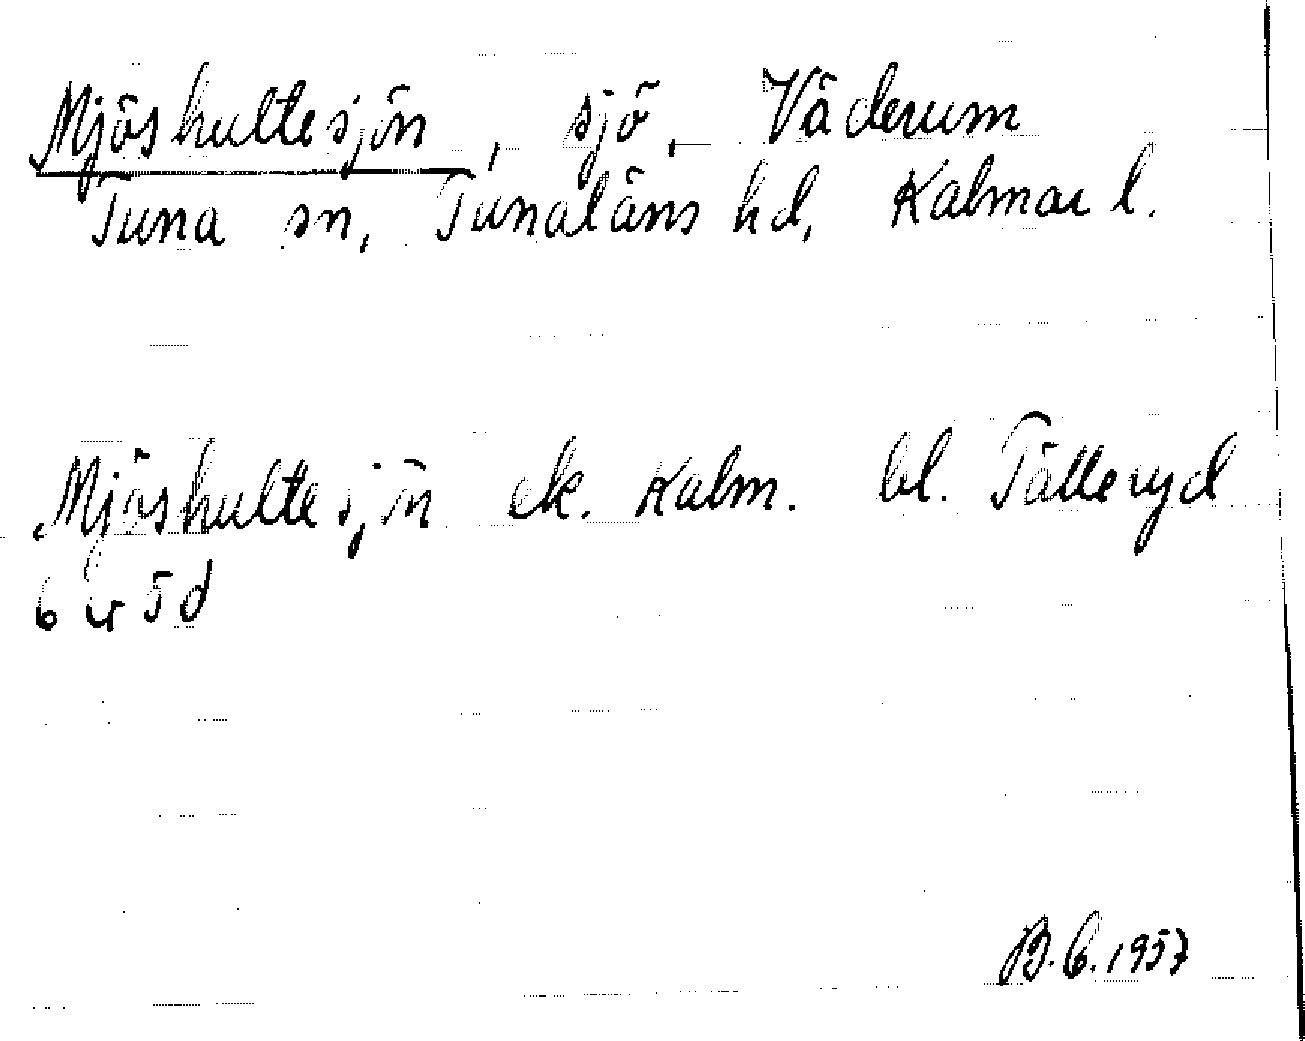 Mjöshultesjön, sjö, Väderum
Tuna sn, Tunaläns hd, Kalmar l.
Mjöshultesjön ek. Kalm. bl. Tålleryd
6 4 5 d
B. C. 1957